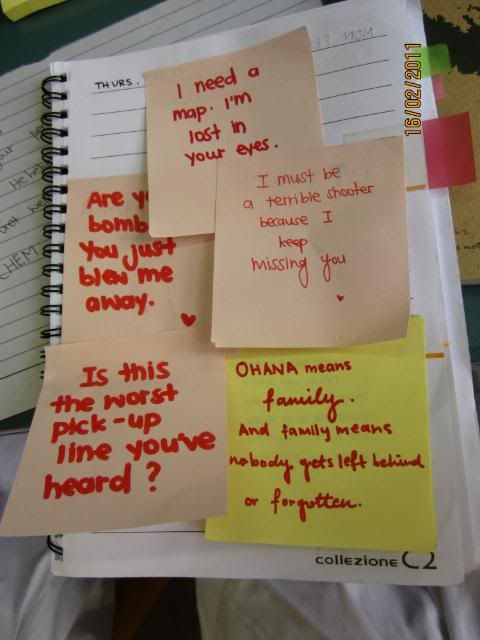 THURS.
16/02/2011
I need a
map. I'm
lost in
your eyes.
I must be
a terrible shooter
because I
keep
missing you
Are
bomb
You just
blew me
away.
Is this
the worst
pick-up
line you've
heard?
OHANA means
family.
And family means
nobody gets left behind
or forgotten.
CHEM
collezione C2